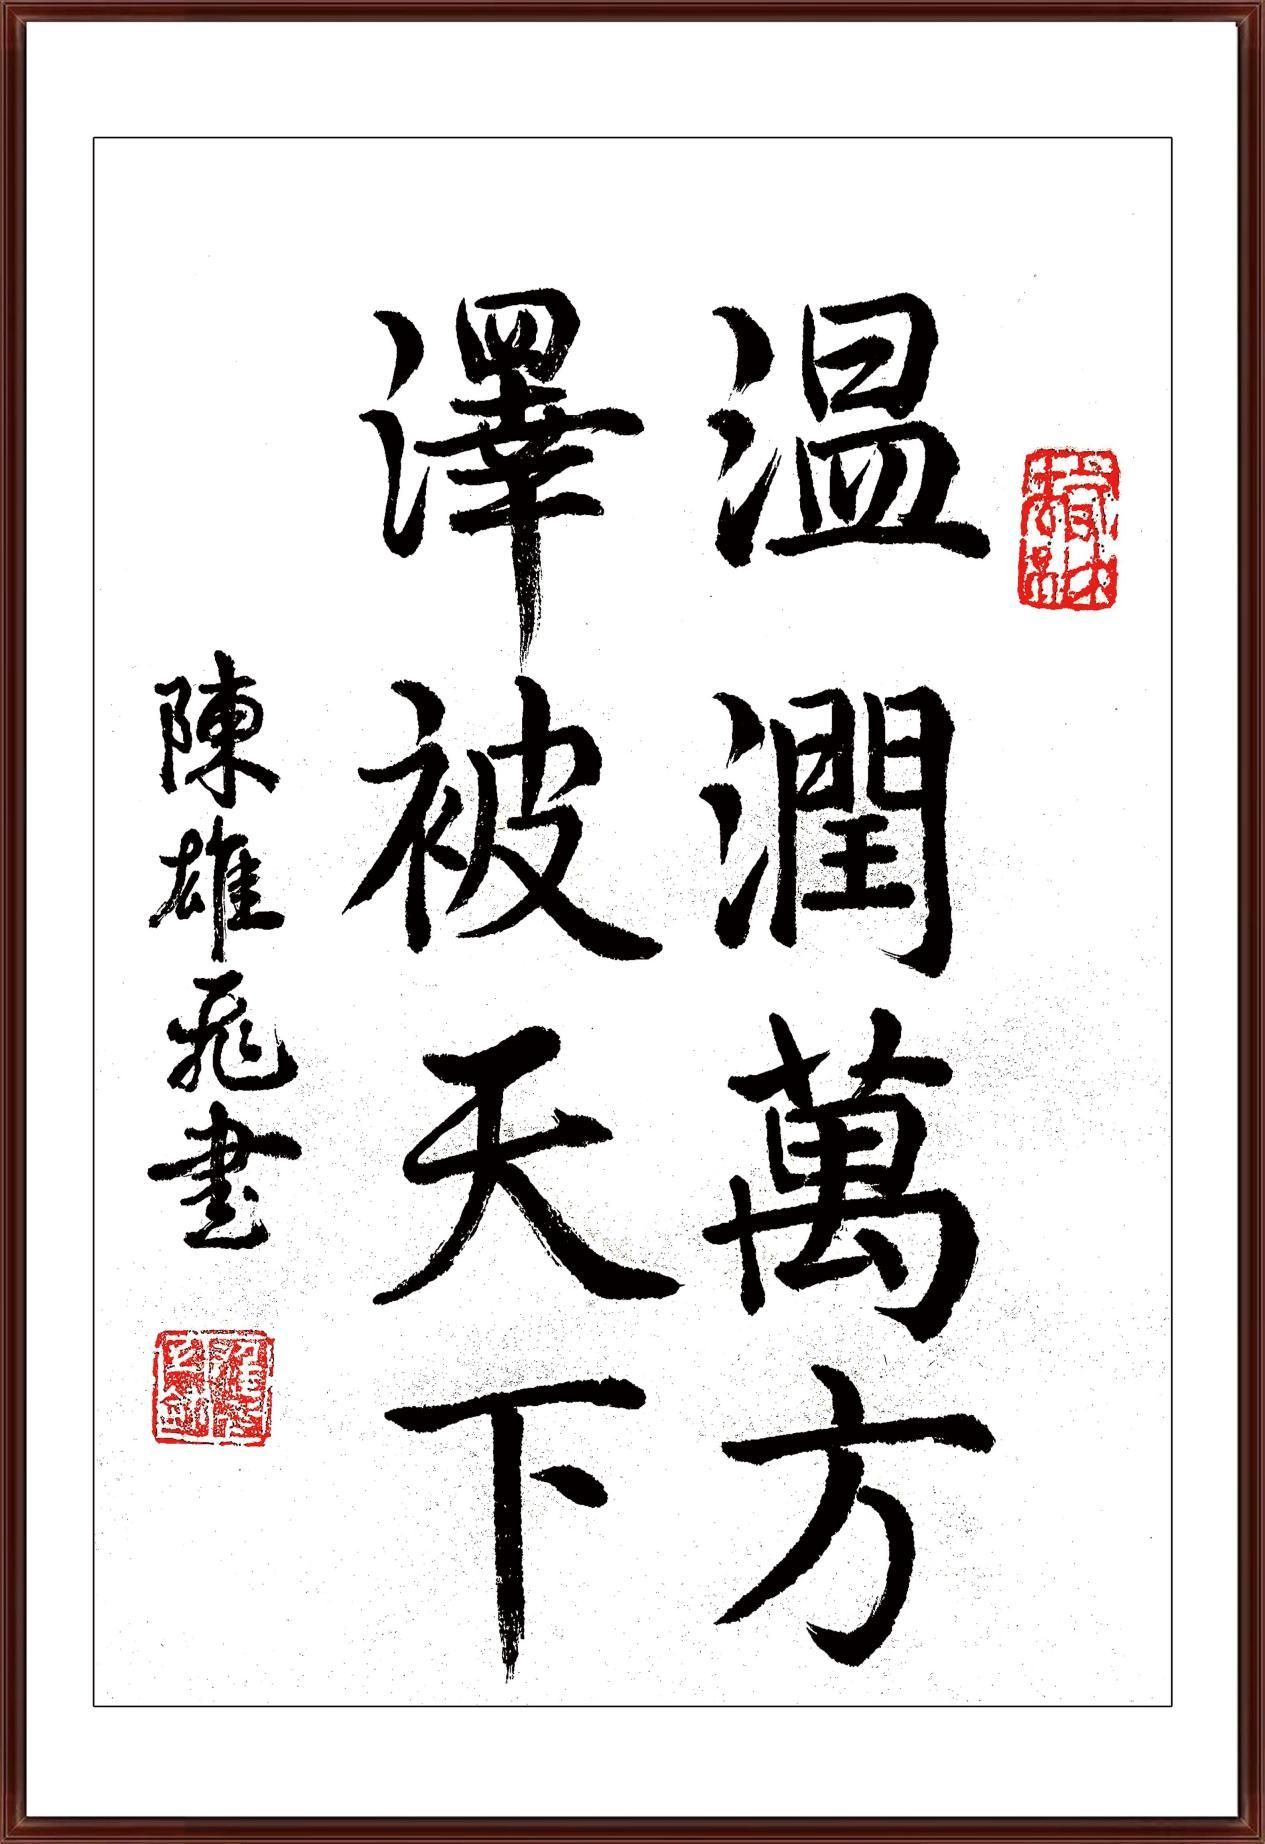 温潤萬方
澤被天下
陳雄飛書